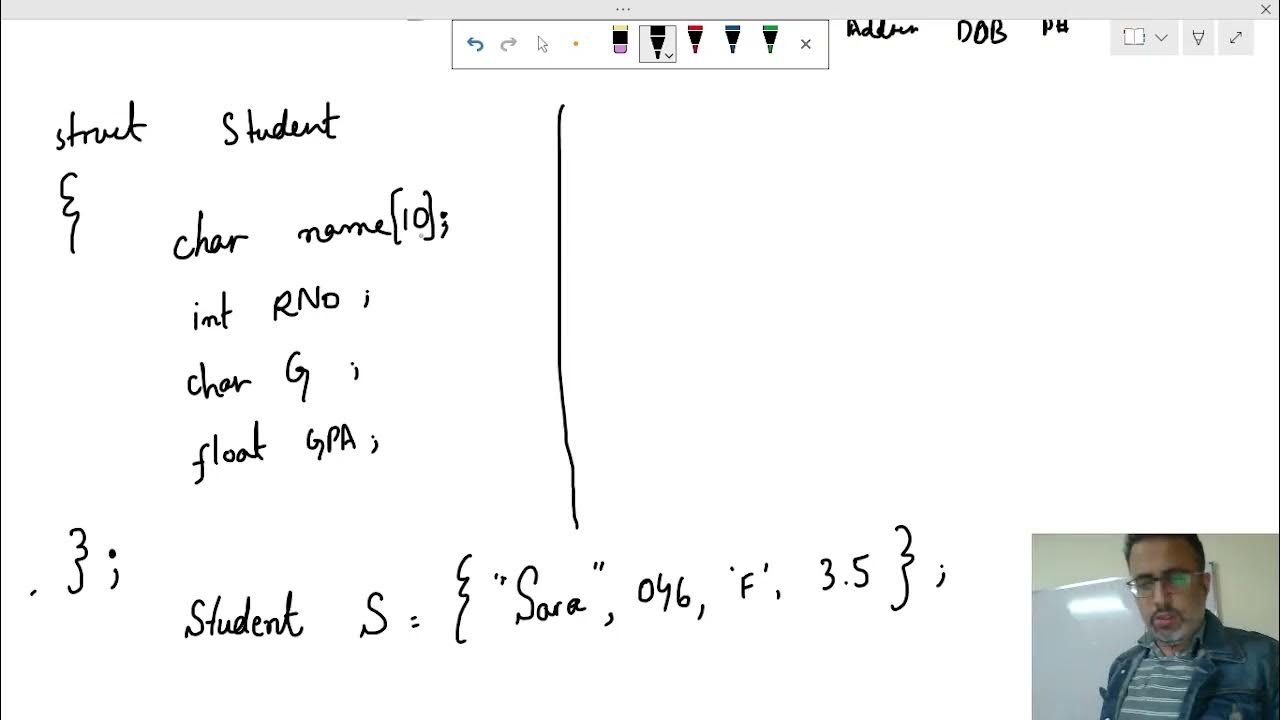 DOB
struct Student
{
char name[10];
int RNo ;
char G ;
float GPA ;
} ;
Student S = { "Sara", 046, 'F', 3.5 } ;